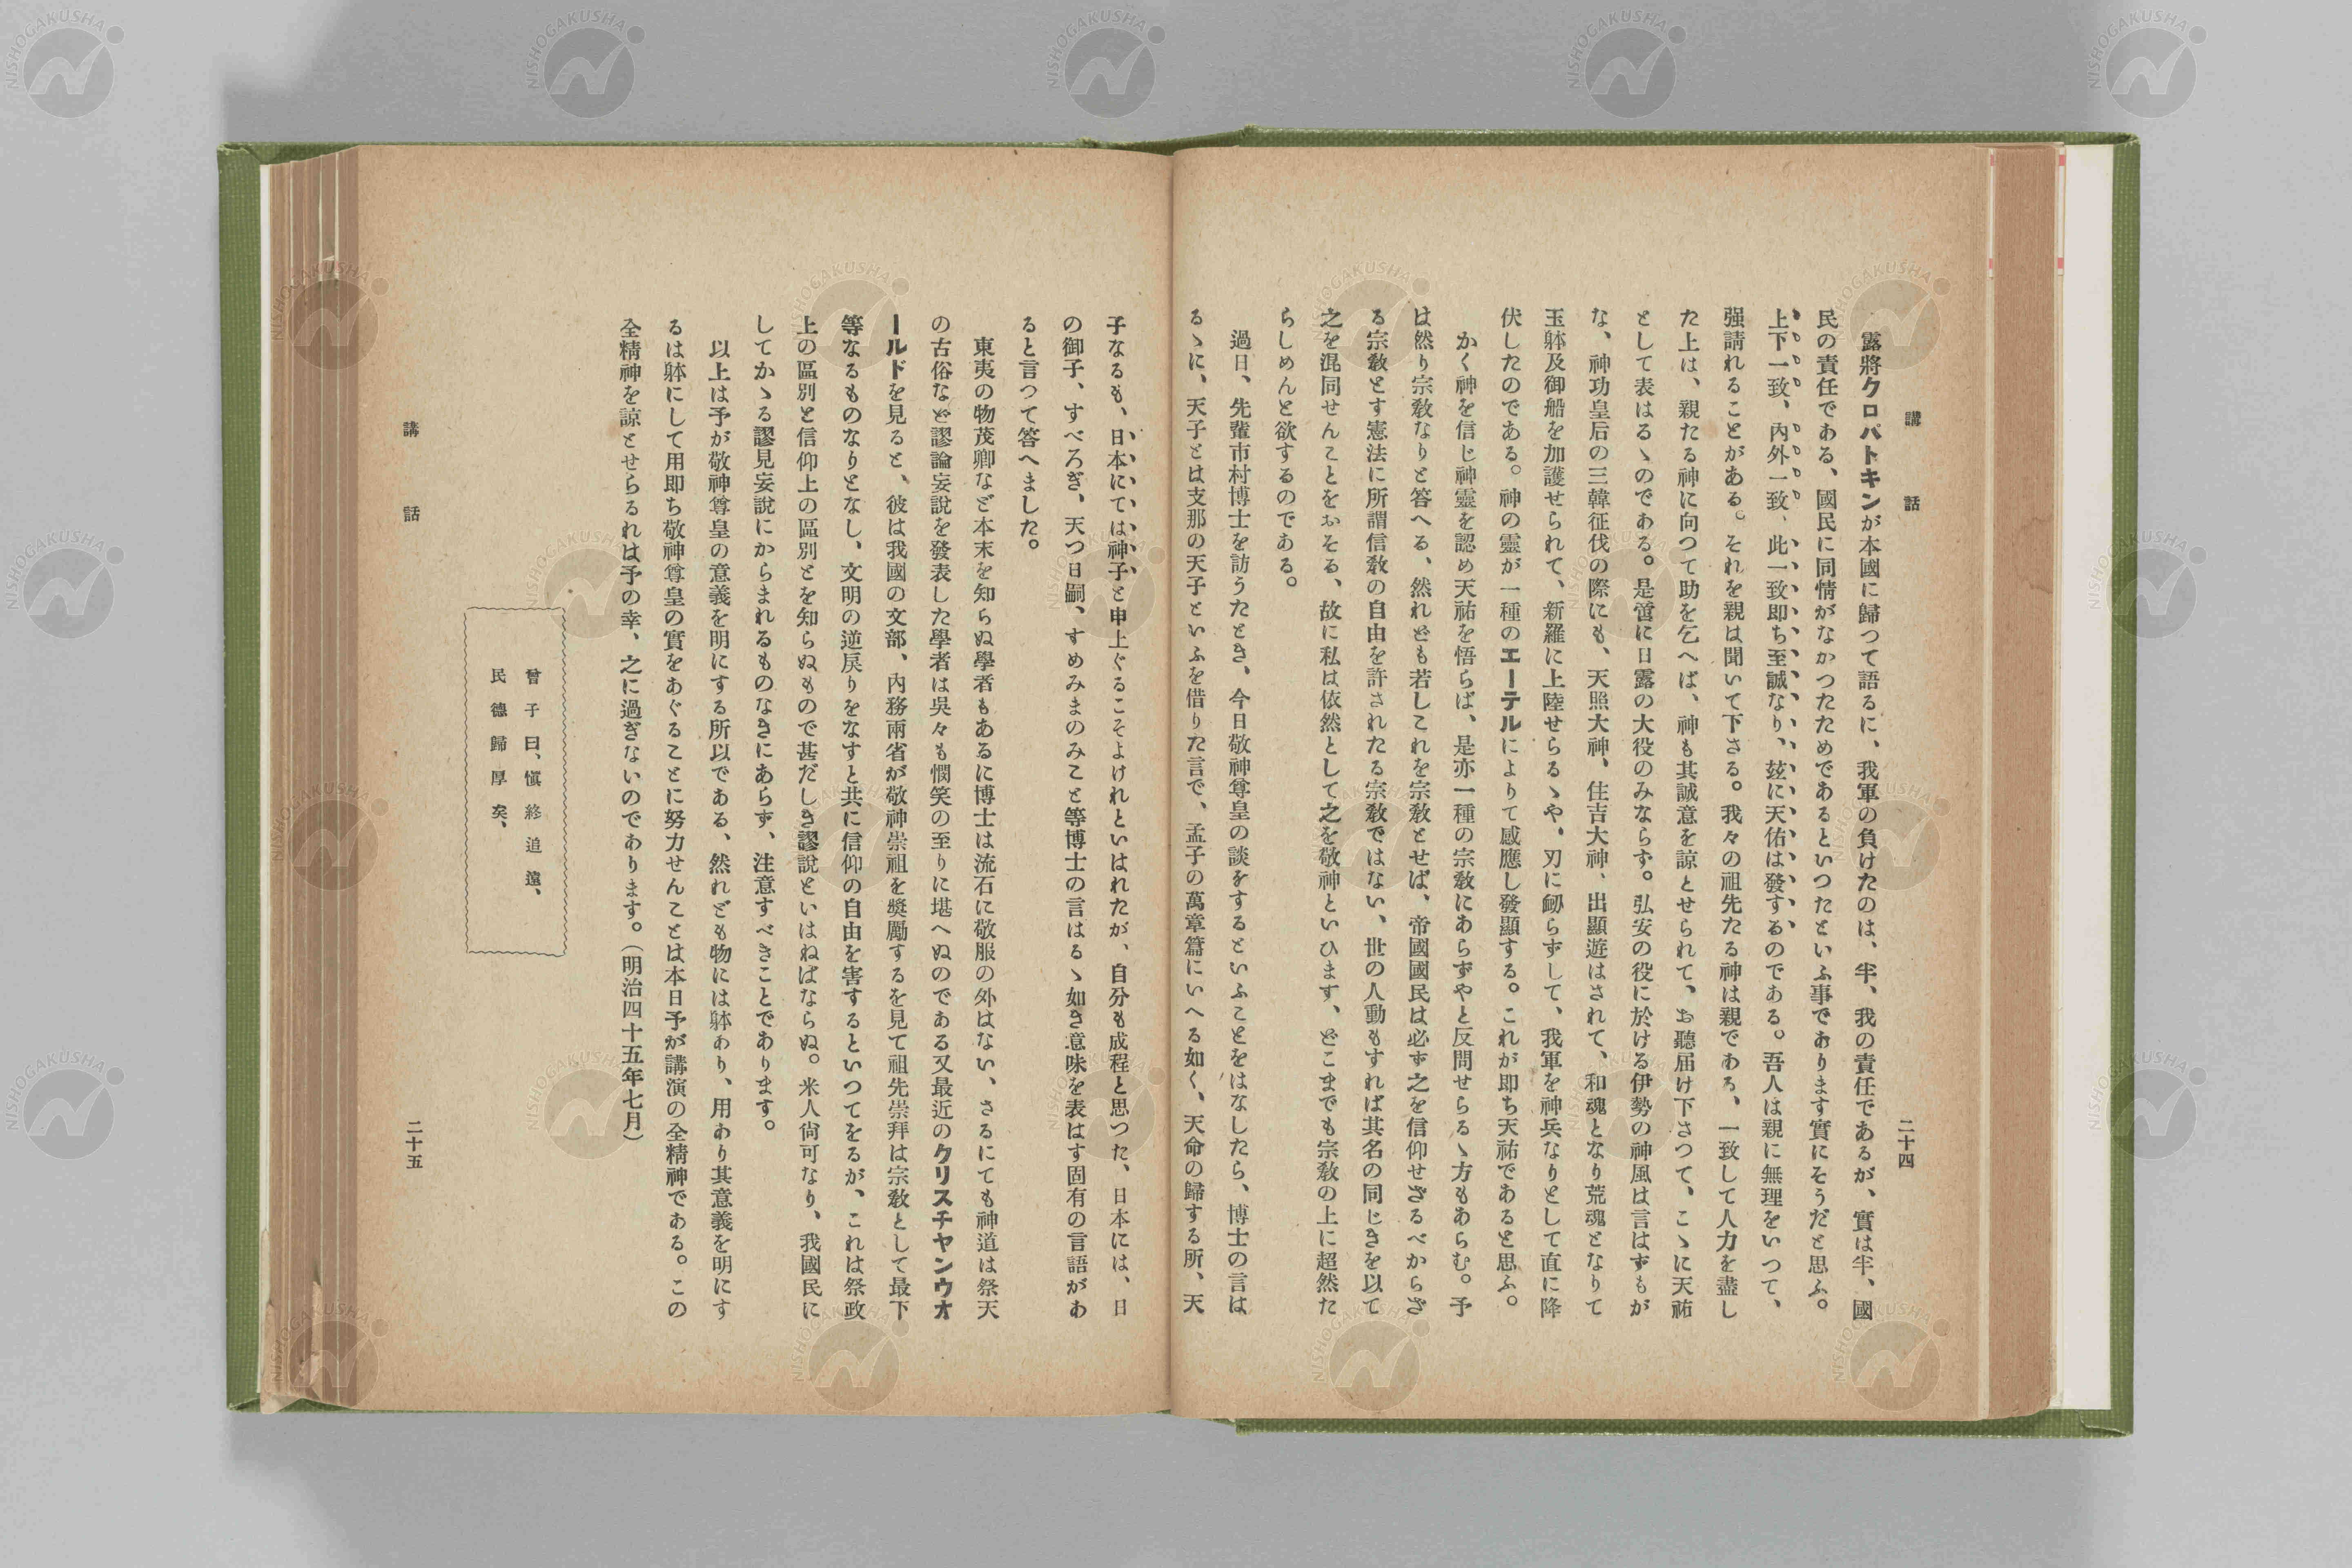 講話
二十四
露將クロパトキンが本國に歸つて語るに、我軍の負けたのは、半、我の責任であるが、實は半、國
民の責任である、國民に同情がなかつたためであるといつたといふ事であります實にそうだと思ふ。
上下一致、內外一致、此一致即ち至誠なり、玆に天佑は發するのである。吾人は親に無理をいつて、
强請れることがある。それを親は聞いて下さる。我々の祖先たる神は親である、一致して人力を盡し
た上は、親たる神に向つて助を乞へば、神も其誠意を諒とせられて、お聽届け下さつて、こゝに天祐
として表はるゝのである。是啻に日露の大役のみならず。弘安の役に於ける伊勢の神風は言はずもが
な、神功皇后の三韓征伐の際にも、天照大神、住吉大神、出顯遊はされて、和魂となり荒魂となりて
玉躰及御船を加護せられて、新羅に上陸せらるゝや、刃に衂らずして、我軍を神兵なりとして直に降
伏したのである。神の靈が一種のエーテルによりて感應し發顯する。これが即ち天祐であると思ふ。
かく神を信じ神靈を認め天祐を悟らば、是亦一種の宗敎にあらずやと反問せらるゝ方もあらむ。予
は然り宗敎なりと答へる、然れども若しこれを宗敎とせば、帝國國民は必ず之を信仰せざるべからざ
る宗敎とす憲法に所謂信敎の自由を許されたる宗敎ではない、世の人動もすれば其名の同じきを以て
之を混同せんことをおそる、故に私は依然として之を敬神といひます、どこまでも宗敎の上に超然た
らしめんと欲するのである。
過日、先輩市村博士を訪うたとき、今日敬神尊皇の談をするといふことをはなしたら、博士の言は
るゝに、天子とは支那の天子といふを借りた言で、孟子の萬章篇にいへる如く、天命の歸する所、天
子なるも、日本にては神子と申上ぐるこそよけれといはれたが、自分も成程と思つた、日本には、日
の御子、すべろぎ、天つ日嗣、すめみまのみこと等博士の言はるゝ如き意味を表はす固有の言語があ
ると言つて答へました。
東夷の物茂卿など本末を知らぬ學者もあるに博士は流石に敬服の外はない、さるにても神道は祭天
の古俗など謬論妄說を發表した學者は吳々も憫笑の至りに堪へぬのである又最近のクリスチヤンウオ
ールドを見ると、彼は我國の文部、內務兩省が敬神崇祖を奬勵するを見て祖先崇拜は宗敎として最下
等なるものなりとなし、文明の逆戾りをなすと共に信仰の自由を害するといつてをるが、これは祭政
上の區別と信仰上の區別とを知らぬもので甚だしき謬說といはねばならぬ。米人尙可なり、我國民に
してかゝる謬見妄說にからまれるものなきにあらず、注意すべきことであります。
以上は予が敬神尊皇の意義を明にする所以である、然れども物には躰あり、用あり其意義を明にす
るは躰にして用即ち敬神尊皇の實をあぐることに努力せんことは本日予が講演の全精神である。この
全精神を諒とせらるれは予の幸、之に過ぎないのであります。（明治四十五年七月）
曾子曰、愼終追遠、
民德歸厚矣、
講話
二十五
NISHOGAKUSHA